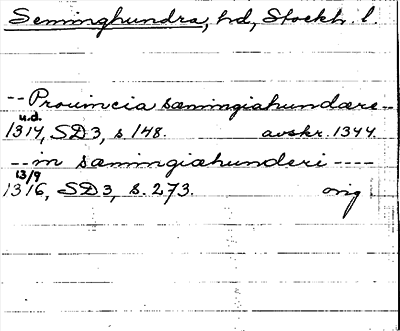 Seminghundra, hd, Stockh. l.
-- Prouincia sæmingiahundære --
u.d.
1314, SD3, s 148. avskr. 1344.
-- in sæmingiæhunderi ----
13/9
1316, SD3, s. 273. orig